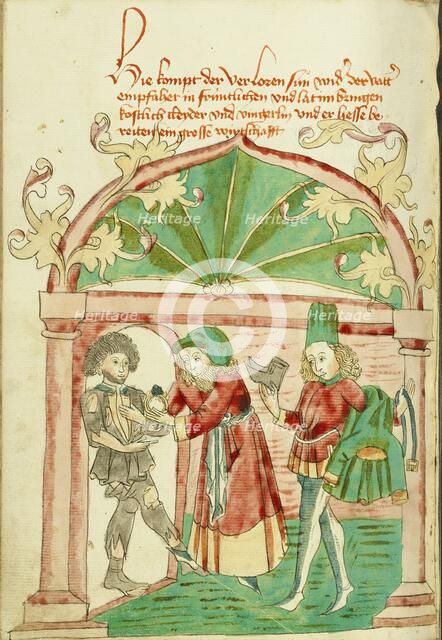 Hie kompt der verlorn sun wider der vatt
empfahet in fruntlichen und lat im bringen
kostlich cleider und vingerlin und er hiesse be
reiten ein grosse wirtschafft
Heritage
Heritage
Heritage
Heritage
Heritage
Heritage
Heritage
Heritage